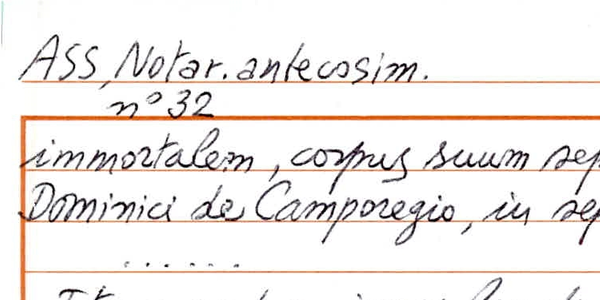 ASS, Notar. antecosim.
n° 32
immortalem, corpus suum sep
Dominici de Camporegio, in sep
.......